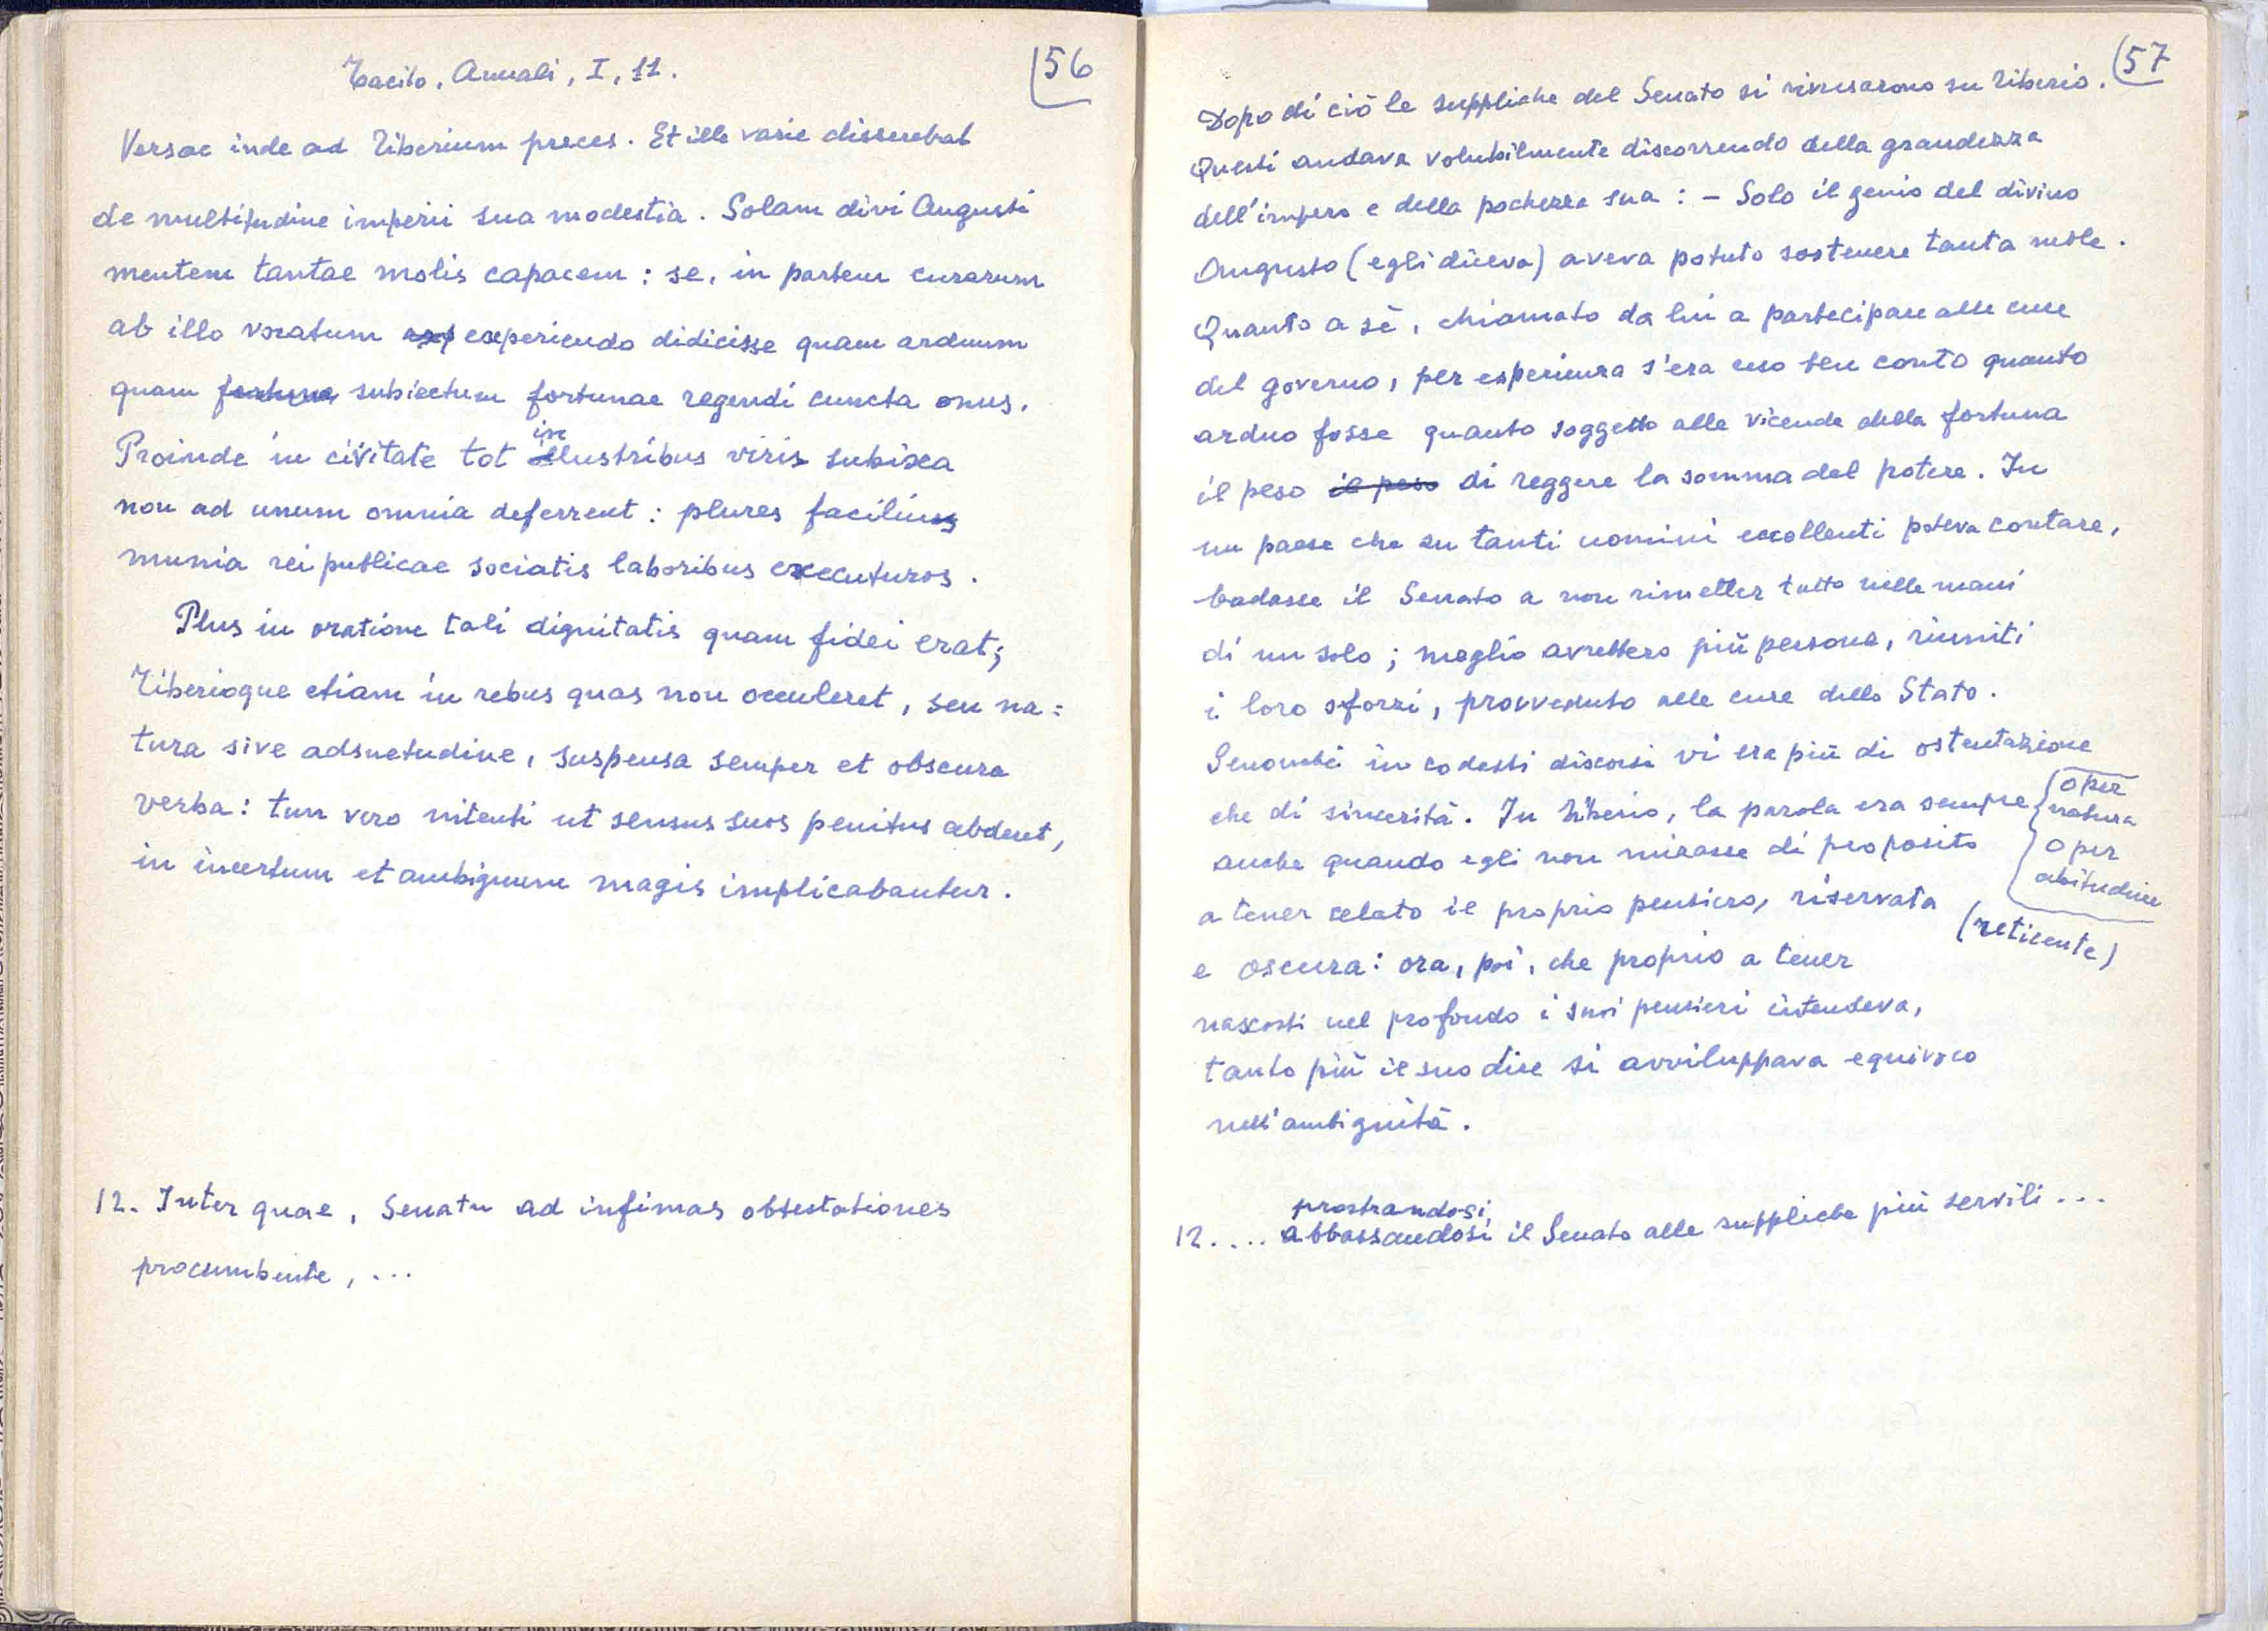 Tacito, Annali, I, 11.
56
Versae inde ad Tiberium preces. Et ille varie disserebat
de multitudine imperii sua modestia. Solam divi Augusti
mentem tantae molis capacem : se, in partem curarum
ab illo vocatum exp experiendo didicisse quam arduum
quam fortuna subiectum fortunae regendi cuncta onus.
Proinde in civitate tot inlustribus viris subixa
non ad unum omnia deferrent : plures facilius
munia rei publicae sociatis laboribus executuros.
Plus in oratione tali dignitatis quam fidei erat;
Tiberioque etiam in rebus quas non occuleret, seu na=
tura sive adsuetudine, suspensa semper et obscura
verba: tun vero nitenti ut sensus suos penitus abderet,
in incertum et ambiguum magis implicabantur.
12. Inter quae, Senatu ad infimas obtestationes
procumbente, ...
57
Dopo di ciò le suppliche del Senato si riversarono su Tiberio.
Questi andava volubilmente discorrendo della grandezza
dell'impero e della pochezza sua : - Solo il genio del divino
Augusto (egli diceva) aveva potuto sostenere tanta mole.
Quanto a sè, chiamato da lui a partecipare alle cure
del governo, per esperienza s'era reso ben conto quanto
arduo fosse quanto soggetto alle vicende della fortuna
il peso il peso di reggere la somma del potere. In
un paese che su tanti uomini eccellenti poteva contare,
badasse il Senato a non rimetter tutto nelle mani
di un solo ; meglio avrebbero più persone, riuniti
i loro sforzi, provveduto alle cure dello Stato.
Senonché in codesti discorsi vi era più di ostentazione
che di sincerità. In Tiberio, la parola era sempre
o per
natura
o per
abitudine
anche quando egli non mirasse di proposito
a tener celato il proprio pensiero, riservata
(reticente)
e oscura: ora, poi, che proprio a tener
nascosti nel profondo i suoi pensieri intendeva,
tanto più il suo dire si avviluppava equivoco
nell'ambiguità.
prostrandosi
12. ... abbassandosi il Senato alle suppliche più servili ...